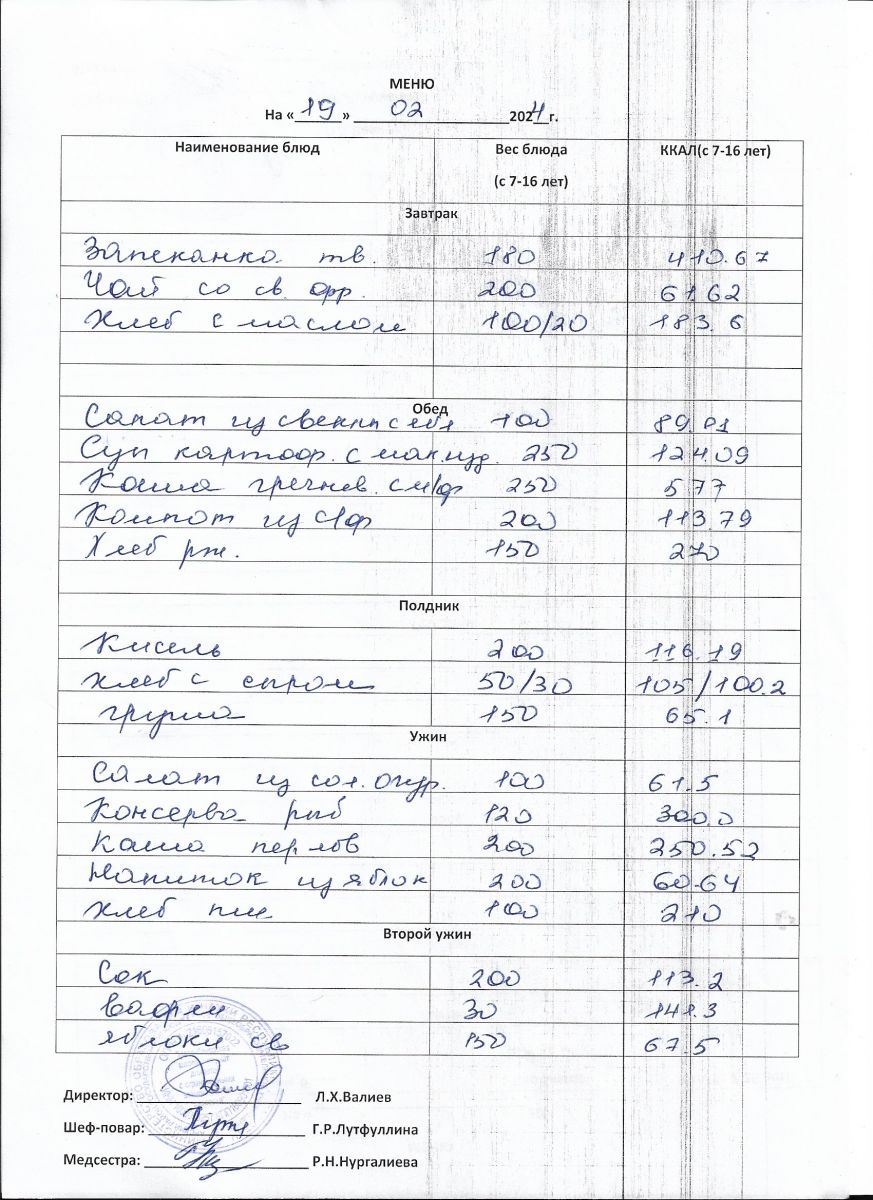 МЕНЮ
На «19» 02 2024 г.
Наименование блюд Вес блюда (с 7-16 лет) ККАЛ(с 7-16 лет)
Завтрак
Запеканка тв. 180 410.67
Чай со св. фр. 200 61.62
Хлеб с маслом 100/20 183.6
Обед
Салат из свеклы с яб 100 89.01
Суп картоф. с мак.изд. 250 124.09
Каша гречнев. с м/ф 250 577
Компот из с/ф 200 113.79
Хлеб рж. 150 270
Полдник
Кисель 200 116.19
Хлеб с сыром 50/30 105/100.2
груша 150 65.1
Ужин
Салат из сол. огур. 100 61.5
Консерва рыб 120 300.0
Каша перлов 200 250.52
Напиток из яблок 200 60.64
Хлеб пш 100 210
Второй ужин
Сок 200 113.2
Вафли 30 141.3
яблоки св 150 67.5
Директор: Л.Х.Валиев
Шеф-повар: Г.Р.Лутфуллина
Медсестра: Р.Н.Нургалиева